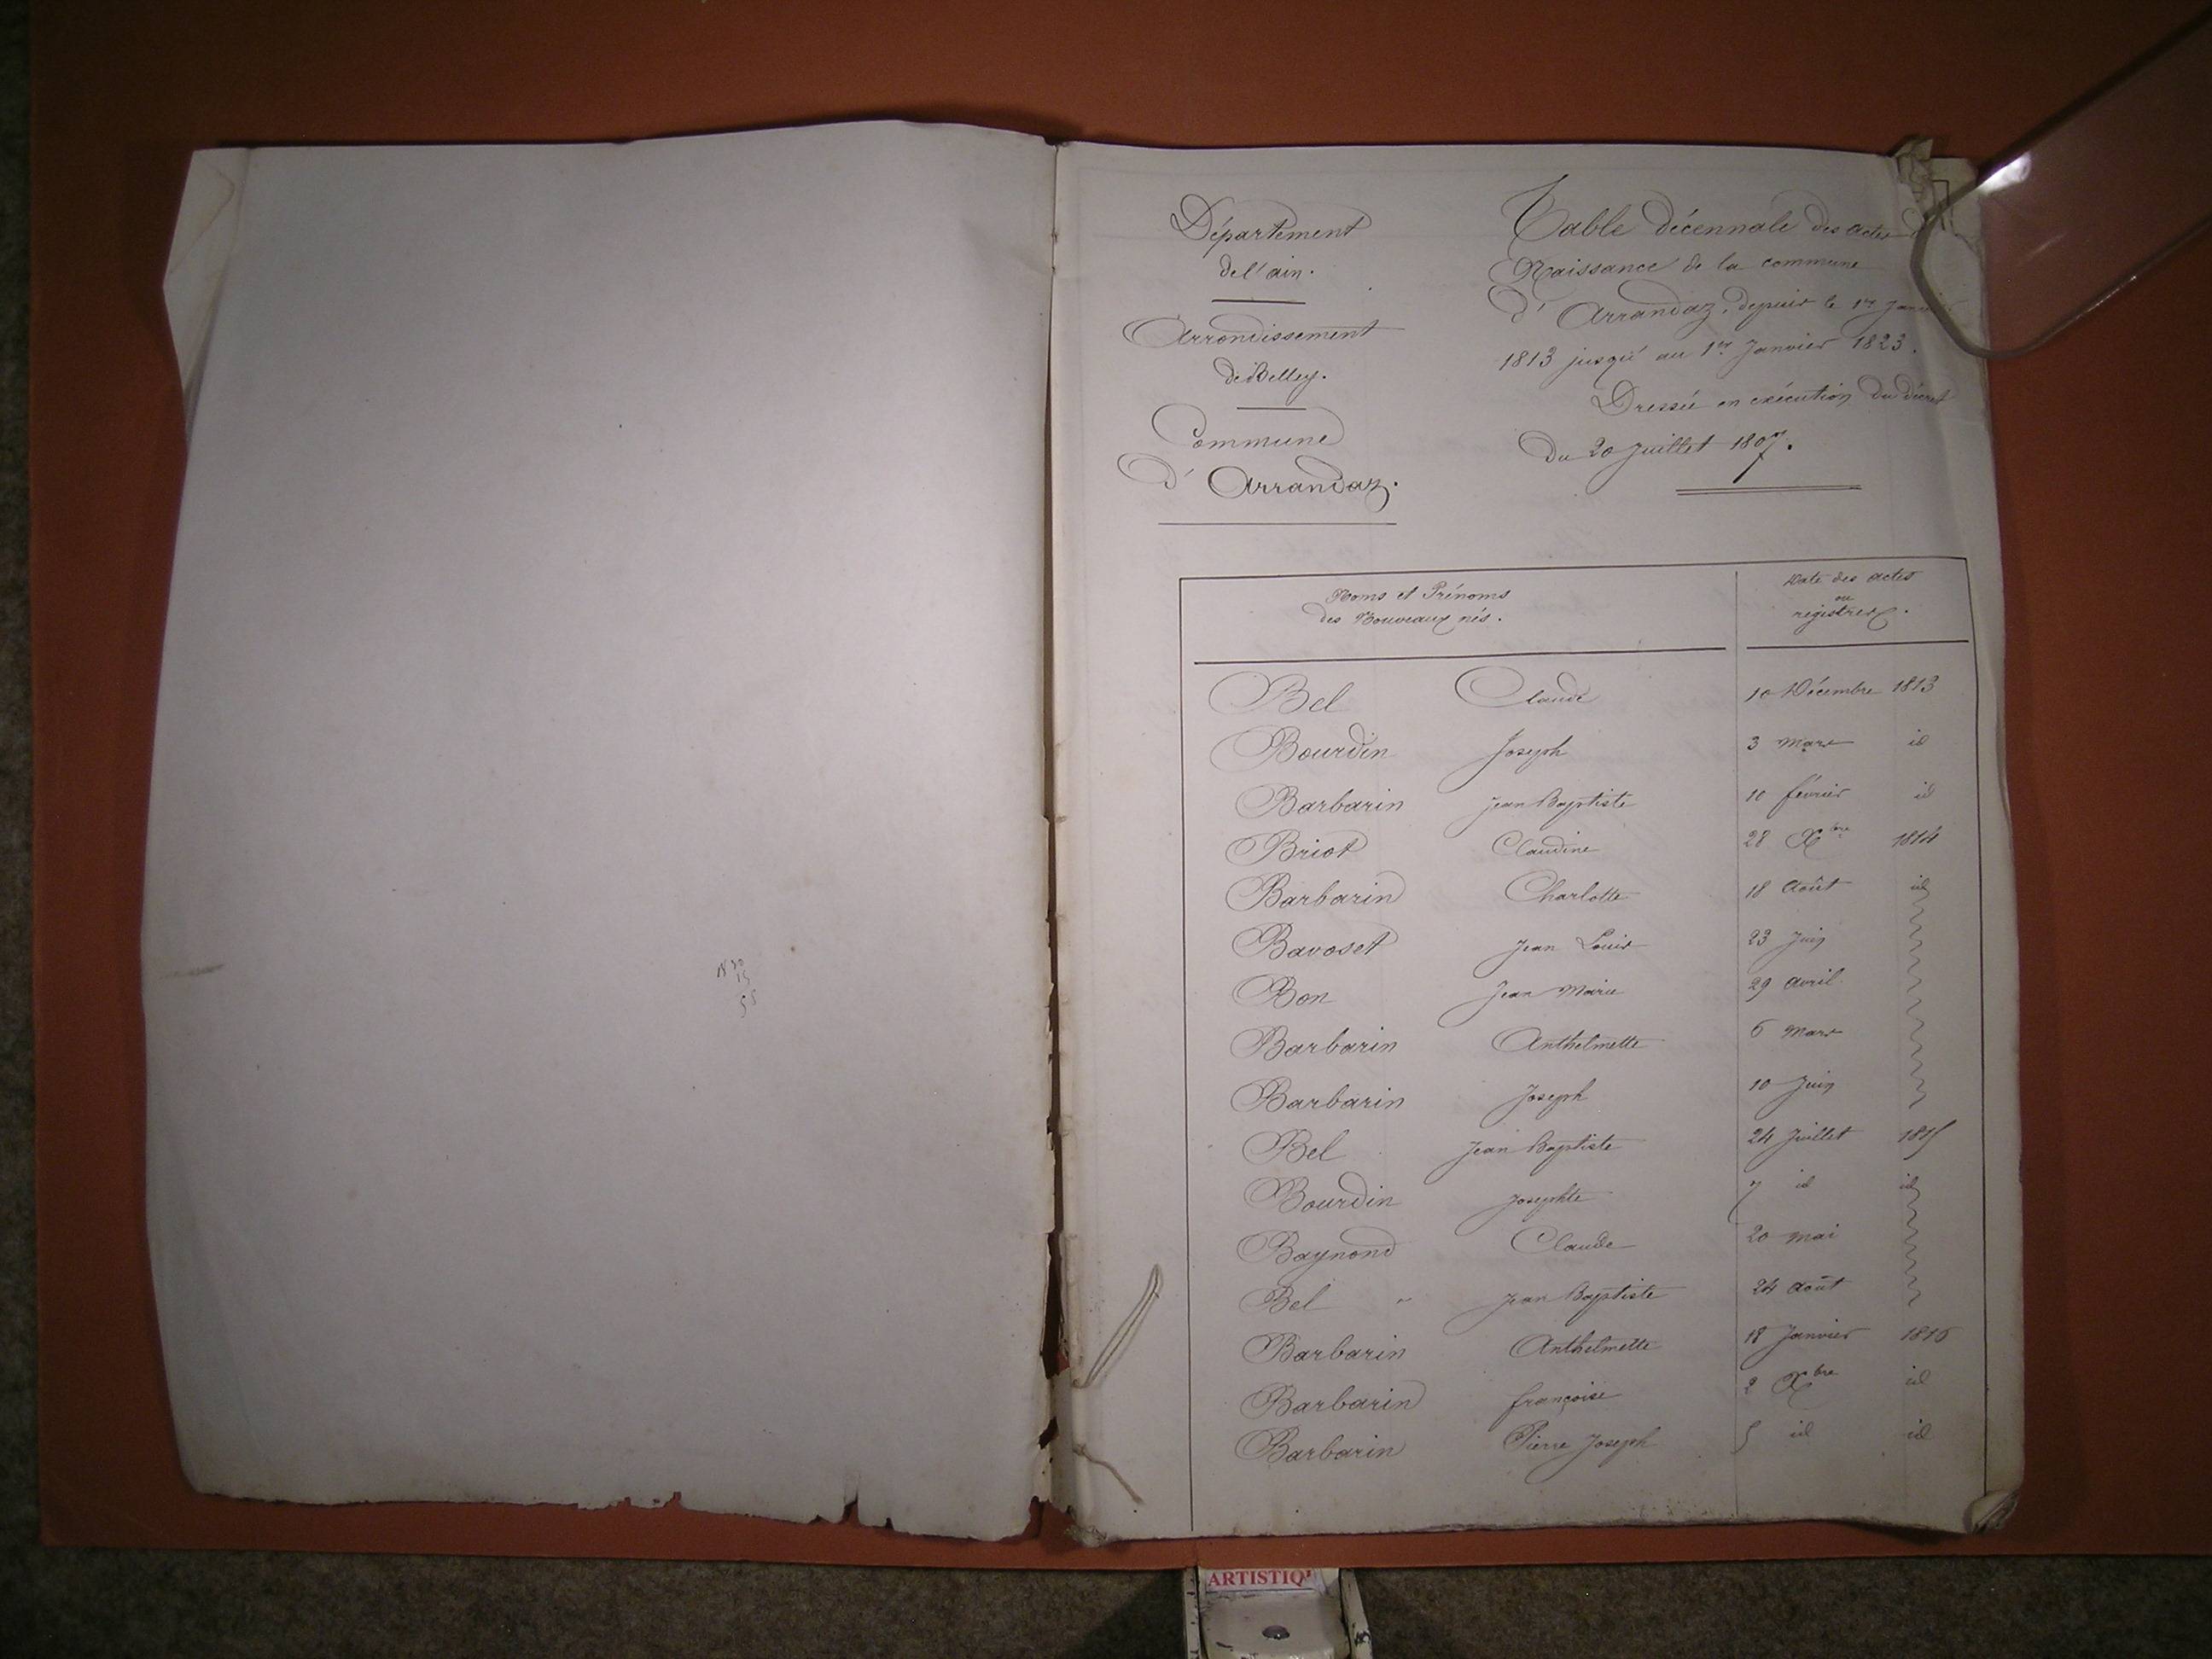 Département
de l'ain.
Arrondissement
de Belley.
Commune
d'Arrandaz.
Table décennale des actes
Naissance de la commune
d'Arrandaz, depuis le 1er Janvier
1813 jusqu'au 1er Janvier 1823.
Dressée en exécution du décret
du 20 Juillet 1807.
Noms et Prénoms
des Nouveaux nés.
Date des actes
ou
registres.
Bel Claude 10 Décembre 1813
Bourdin Joseph 3 Mars id
Barbarin Jean Baptiste 10 février id
Briot Claudine 28 Xbre 1814
Barbarin Charlotte 18 Août id
Bavoset Jean Louis 23 Juin
Bon Jean Marie 29 avril
Barbarin Anthelmette 6 Mars
Barbarin Joseph 10 Juin
Bel Jean Baptiste 24 Juillet 1815
Bourdin Josephte 7 id id
Baynond Claude 20 mai
Bel Jean Baptiste 24 août
Barbarin Anthelmette 18 Janvier 1816
Barbarin françoise 2 Xbre id
Barbarin Pierre Joseph 5 id id
ARTISTIQ'